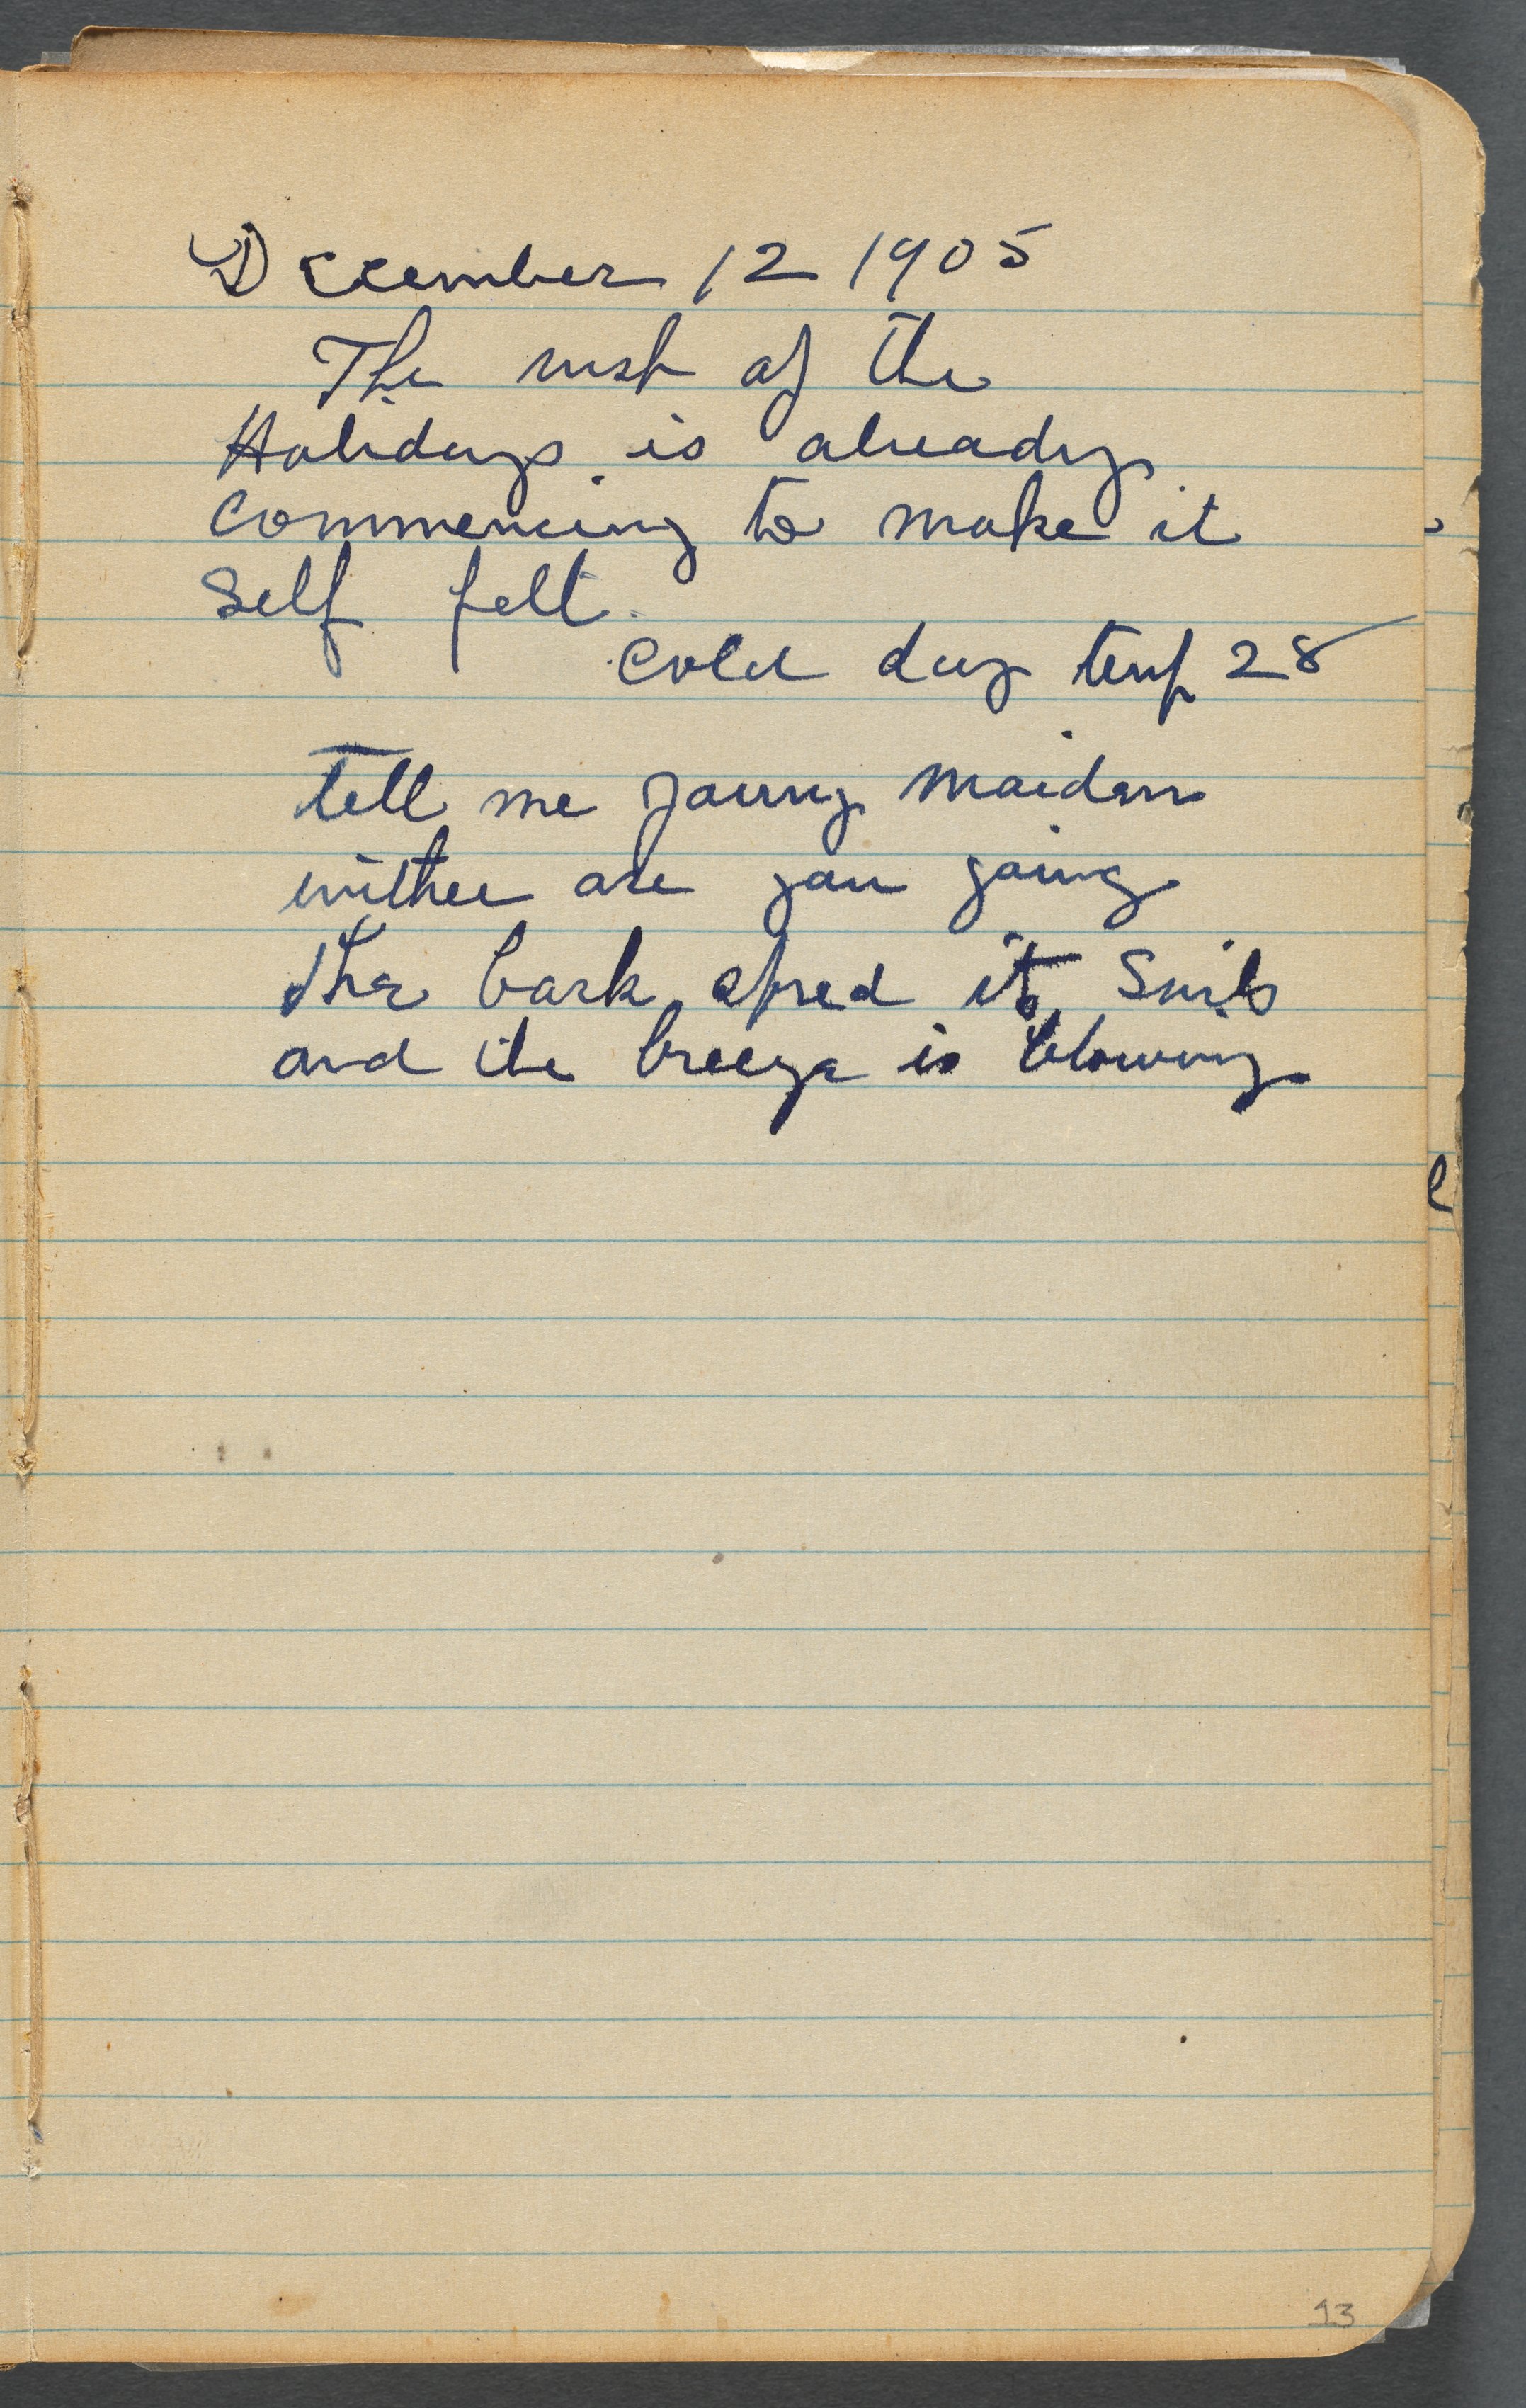 December 12 1905
The rush of the
Holidays is already
commencing to make it
Self felt.
Cold day temp 28
tell me young maiden
wither are you going
the bark spred its Sails
and the breeze is blowing
13